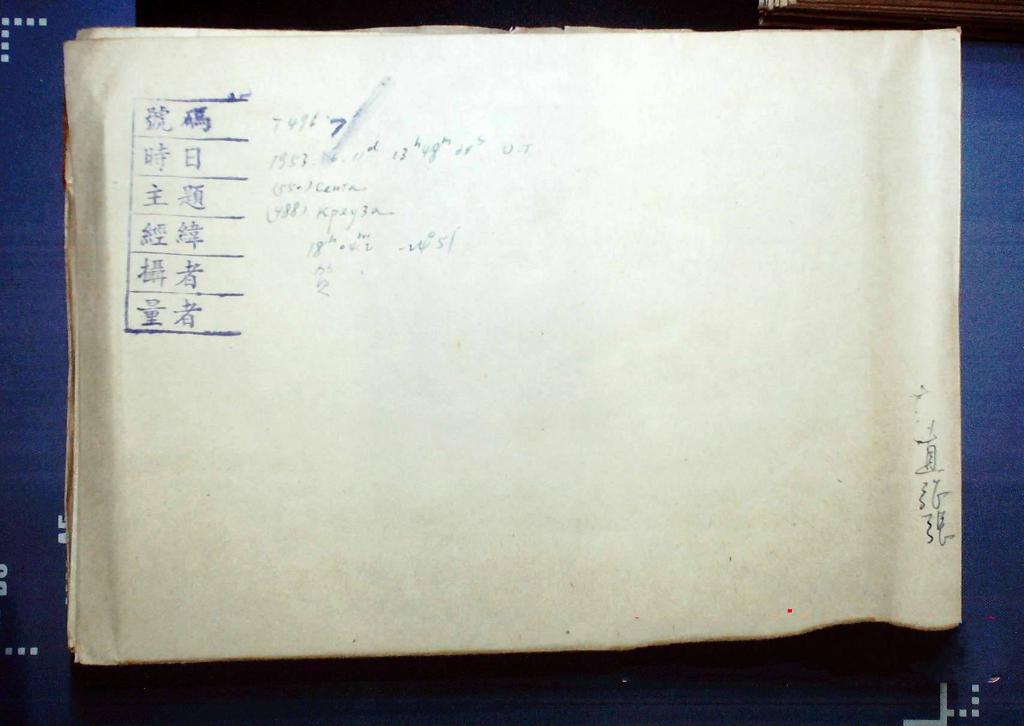 號碼 T496 7
時日 1953. 6. 11ᵈ 13ʰ 48ᵐ U.T
主題 (550) Сента
(488) Креуза
經緯 18ʰ 04ᵐ.2 -24°51'
攝者
量者
張